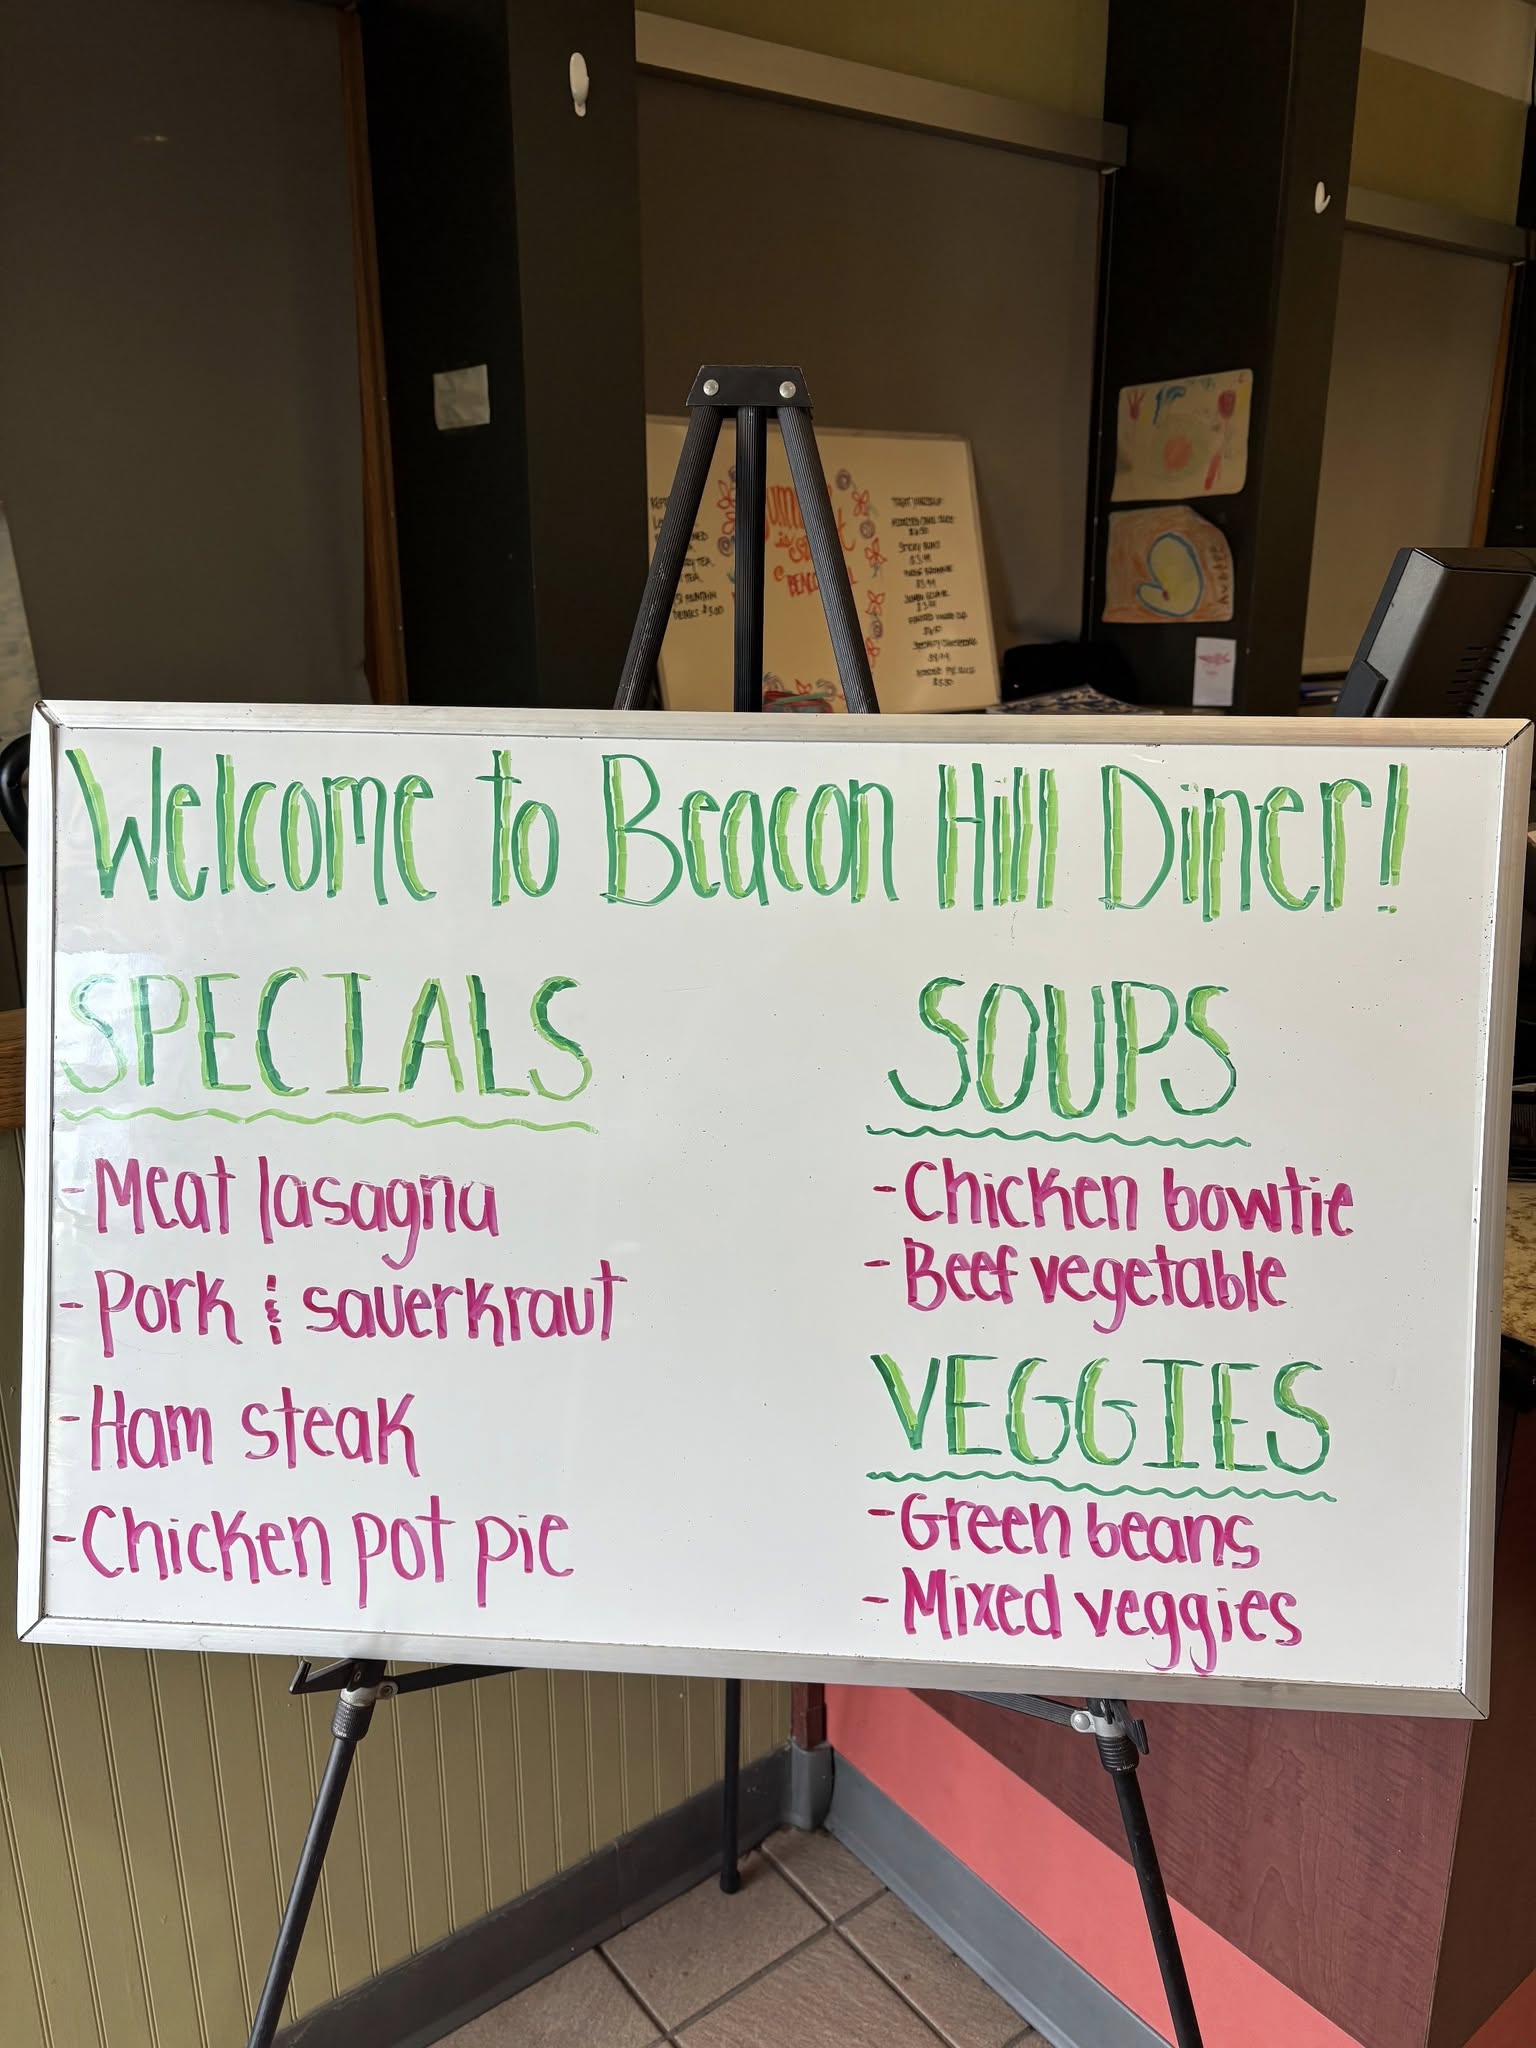 Welcome to Beacon Hill Diner!
SPECIALS
- Meat lasagna
- Pork & sauerkraut
- Ham steak
- Chicken pot pie
SOUPS
- Chicken bowtie
- Beef vegetable
VEGGIES
- Green beans
- Mixed veggies
is
@
TEA
DRINKS $3.00
STICKY BUNS
$3.99